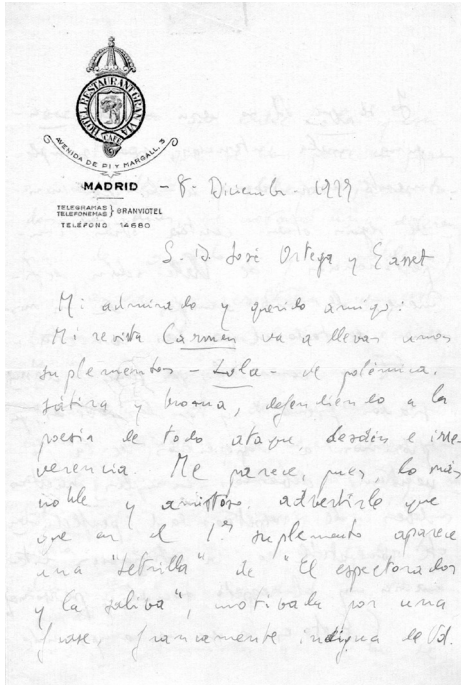 HOTEL RESTAURANT GRAN VIA
CAFÉ
AVENIDA DE PI Y MARGALL, 3
MADRID
TELEGRAMAS
TELEFONEMAS } GRANVIOTEL
TELÉFONO 14680
- 8 - Diciembre - 1927
S. D. José Ortega y Gasset
Mi admirado y querido amigo:
Mi revista Carmen va a llevar unos
suplementos - Lola - de polémica,
sátira y broma, defendiendo a la
poesía de todo ataque, desdén e irre-
verencia. Me parece, pues, lo más
noble y amistoso advertirle que
que en el 1.er suplemento aparece
una "letrilla" de "El espectorador
y la saliva", motivada por una
frase, francamente indigna de Vd.